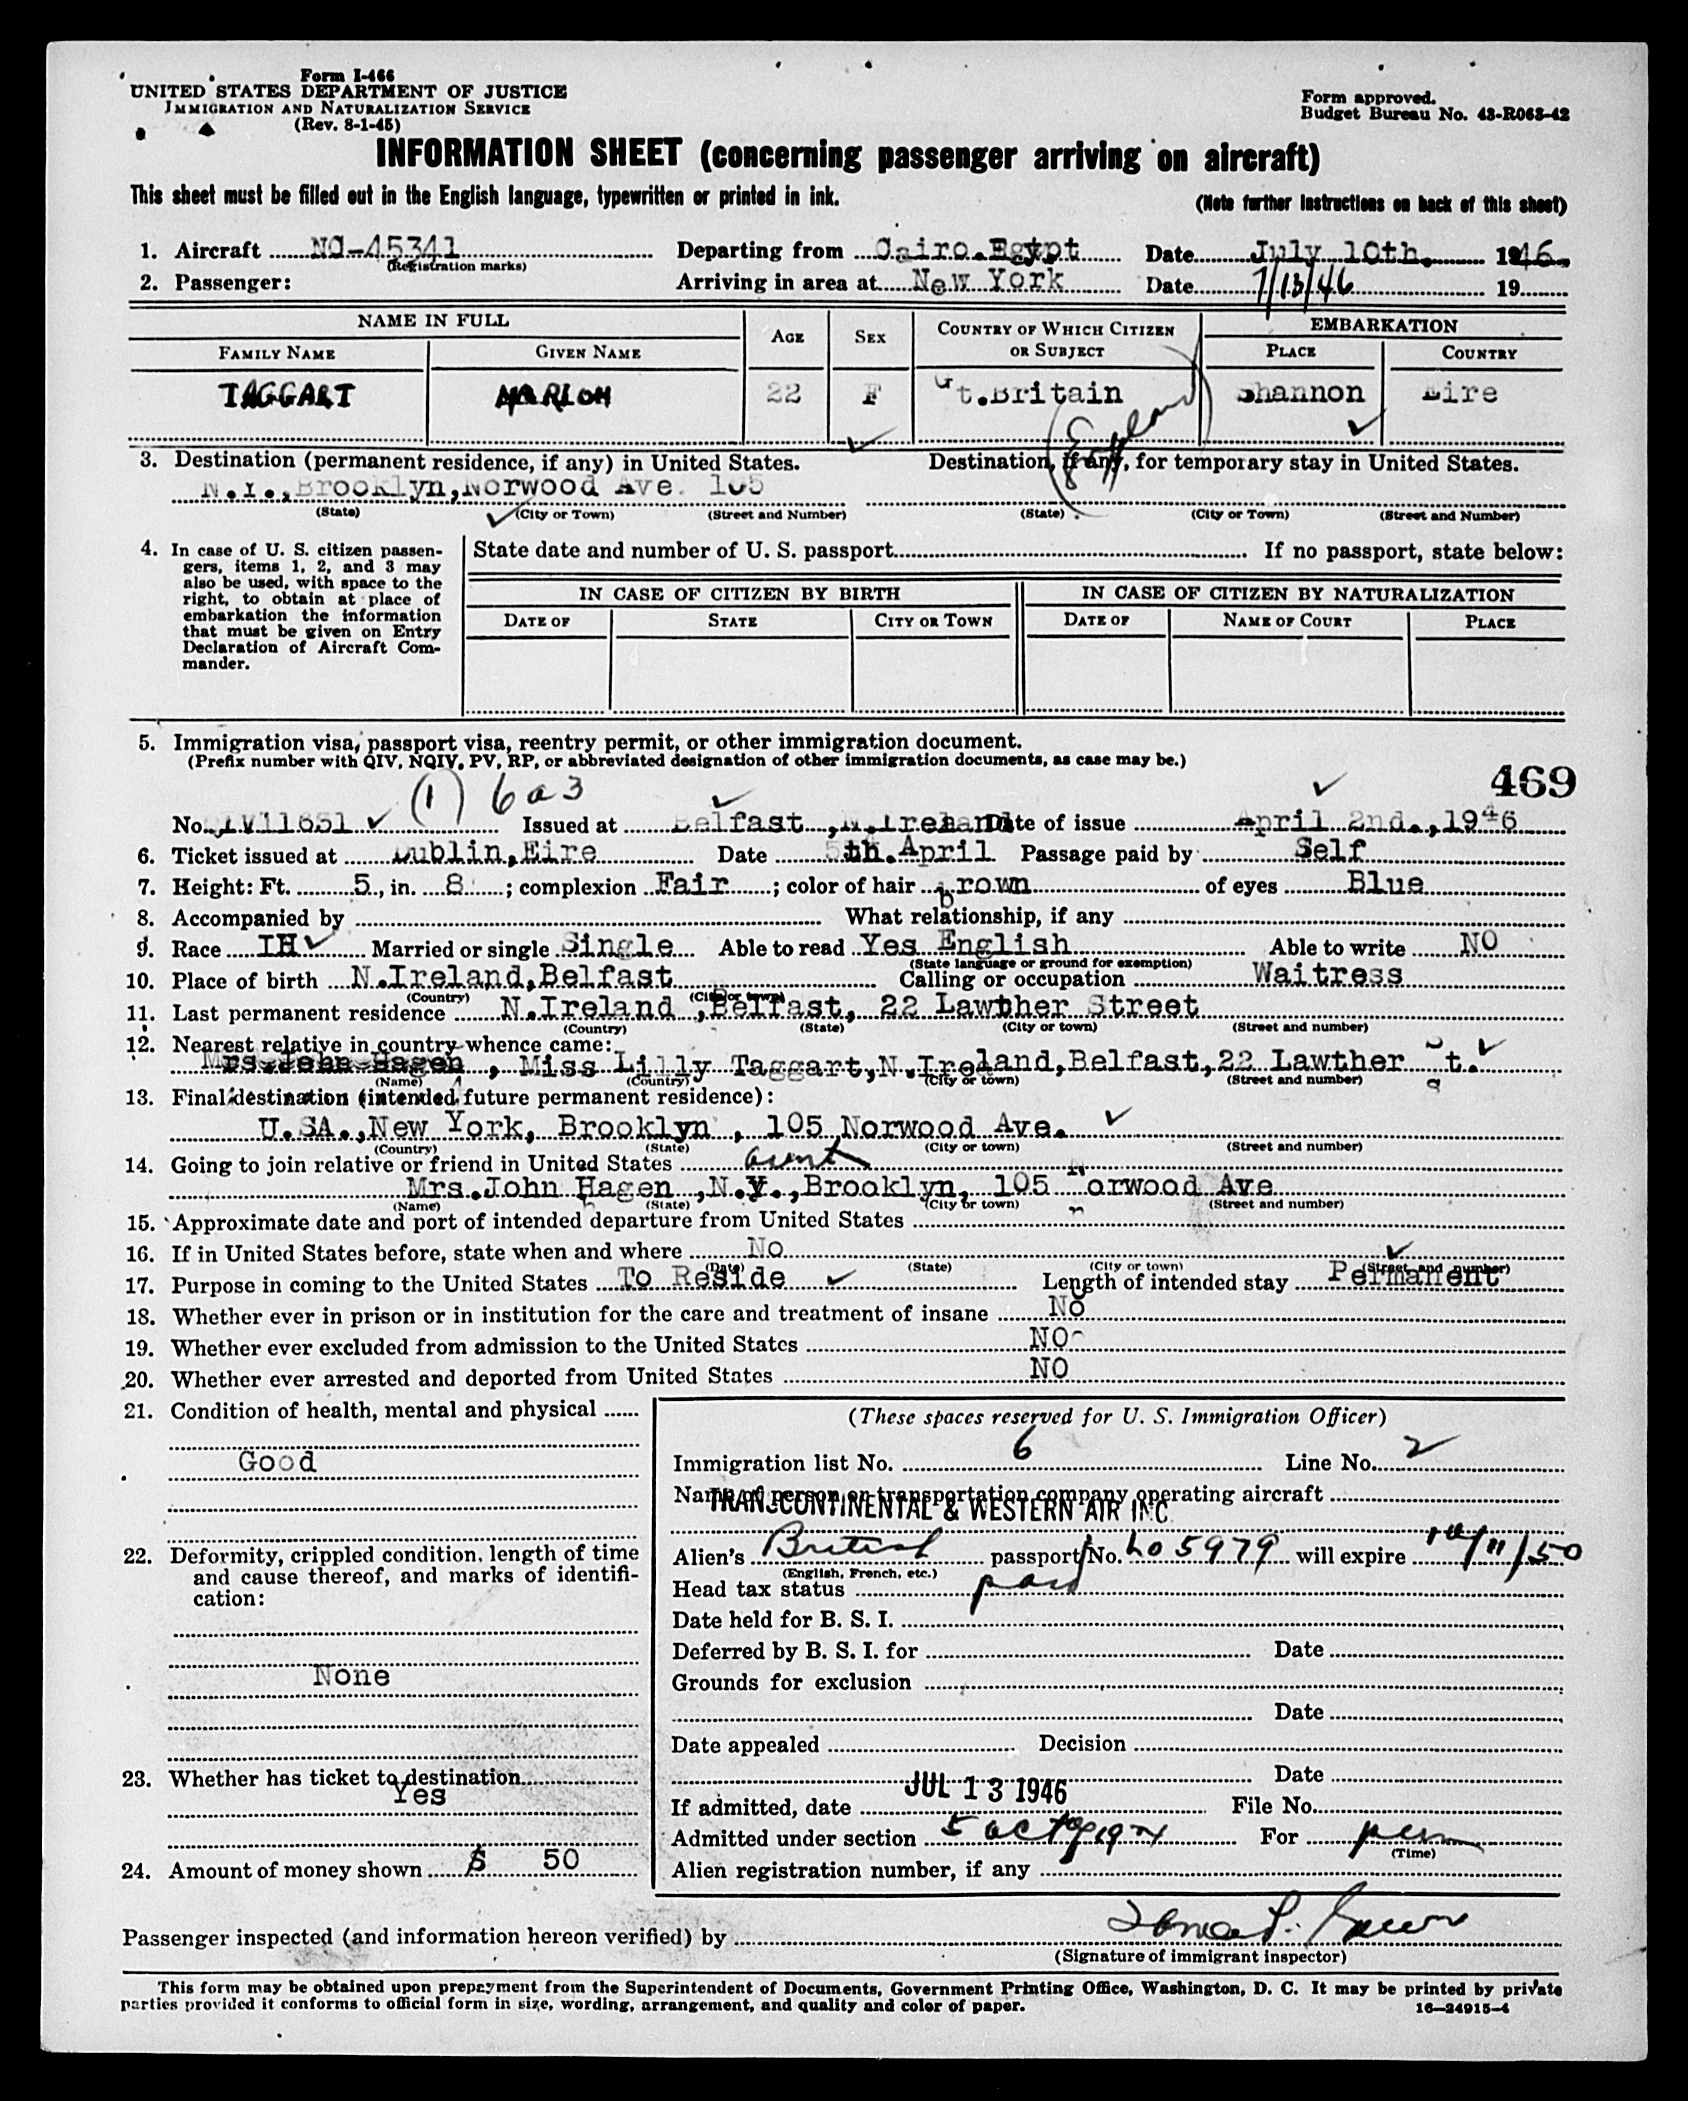 Form I-466
UNITED STATES DEPARTMENT OF JUSTICE
IMMIGRATION AND NATURALIZATION SERVICE
(Rev. 8-1-45)
Form approved.
Budget Bureau No. 43-R063-42
INFORMATION SHEET (concerning passenger arriving on aircraft)
This sheet must be filled out in the English language, typewritten or printed in ink.
(Note further instructions on back of this sheet)
1. Aircraft NC-45341 Departing from Cairo.Egypt Date July 10th. 1946.
(Registration marks)
2. Passenger: Arriving in area at New York Date 7/13/46 19
NAME IN FULL AGE SEX COUNTRY OF WHICH CITIZEN OR SUBJECT EMBARKATION
FAMILY NAME GIVEN NAME PLACE COUNTRY
TAGGART MARION 22 F Gt.Britain Shannon Eire
(England)
3. Destination (permanent residence, if any) in United States. Destination, if any, for temporary stay in United States.
N.Y.,Brooklyn,Norwood Ave. 105
(State) (City or Town) (Street and Number) (State) (City or Town) (Street and Number)
4. In case of U. S. citizen passengers, items 1, 2, and 3 may also be used, with space to the right, to obtain at place of embarkation the information that must be given on Entry Declaration of Aircraft Commander.
State date and number of U. S. passport If no passport, state below:
IN CASE OF CITIZEN BY BIRTH IN CASE OF CITIZEN BY NATURALIZATION
DATE OF STATE CITY OR TOWN DATE OF NAME OF COURT PLACE
5. Immigration visa, passport visa, reentry permit, or other immigration document.
(Prefix number with QIV, NQIV, PV, RP, or abbreviated designation of other immigration documents, as case may be.)
469
(1) 6a3
No. IV11651 Issued at Belfast ,N.Ireland Date of issue April 2nd.,1946
6. Ticket issued at Dublin,Eire Date 5th.April Passage paid by Self
7. Height: Ft. 5, in. 8; complexion Fair; color of hair brown of eyes Blue
8. Accompanied by What relationship, if any
9. Race IH Married or single Single Able to read Yes English Able to write NO
(State language or ground for exemption)
10. Place of birth N.Ireland,Belfast Calling or occupation Waitress
(Country) (City or town)
11. Last permanent residence N.Ireland ,Belfast, 22 Lawther Street
(Country) (State) (City or town) (Street and number)
12. Nearest relative in country whence came:
Mrs.John Hagen , Miss Lilly Taggart,N.Ireland,Belfast,22 Lawther St.
(Name) (Country) (City or town) (Street and number)
13. Final destination (intended future permanent residence):
U.SA.,New York, Brooklyn , 105 Norwood Ave.
(Country) (State) (City or town) (Street and number)
14. Going to join relative or friend in United States aunt
Mrs.John Hagen ,N.Y.,Brooklyn, 105 Norwood Ave
(Name) (State) (City or town) (Street and number)
15. Approximate date and port of intended departure from United States
16. If in United States before, state when and where No
(Date) (State) (City or town) (Street and number)
17. Purpose in coming to the United States To Reside Length of intended stay Permanent
18. Whether ever in prison or in institution for the care and treatment of insane No
19. Whether ever excluded from admission to the United States NO
20. Whether ever arrested and deported from United States NO
21. Condition of health, mental and physical
Good
22. Deformity, crippled condition, length of time and cause thereof, and marks of identification:
None
23. Whether has ticket to destination
Yes
24. Amount of money shown $ 50
(These spaces reserved for U. S. Immigration Officer)
Immigration list No. 6 Line No. 2
Name of person or transportation company operating aircraft
TRANSCONTINENTAL & WESTERN AIR INC.
Alien's British passport No. 205979 will expire 10/11/50
(English, French, etc.)
Head tax status paid
Date held for B. S. I.
Deferred by B. S. I. for Date
Grounds for exclusion
Date
Date appealed Decision
Date
If admitted, date JUL 13 1946 File No.
Admitted under section 5 act of 1924 For perm
(Time)
Alien registration number, if any
Passenger inspected (and information hereon verified) by
(Signature of immigrant inspector)
This form may be obtained upon prepayment from the Superintendent of Documents, Government Printing Office, Washington, D. C. It may be printed by private
parties provided it conforms to official form in size, wording, arrangement, and quality and color of paper.
16—24915-4